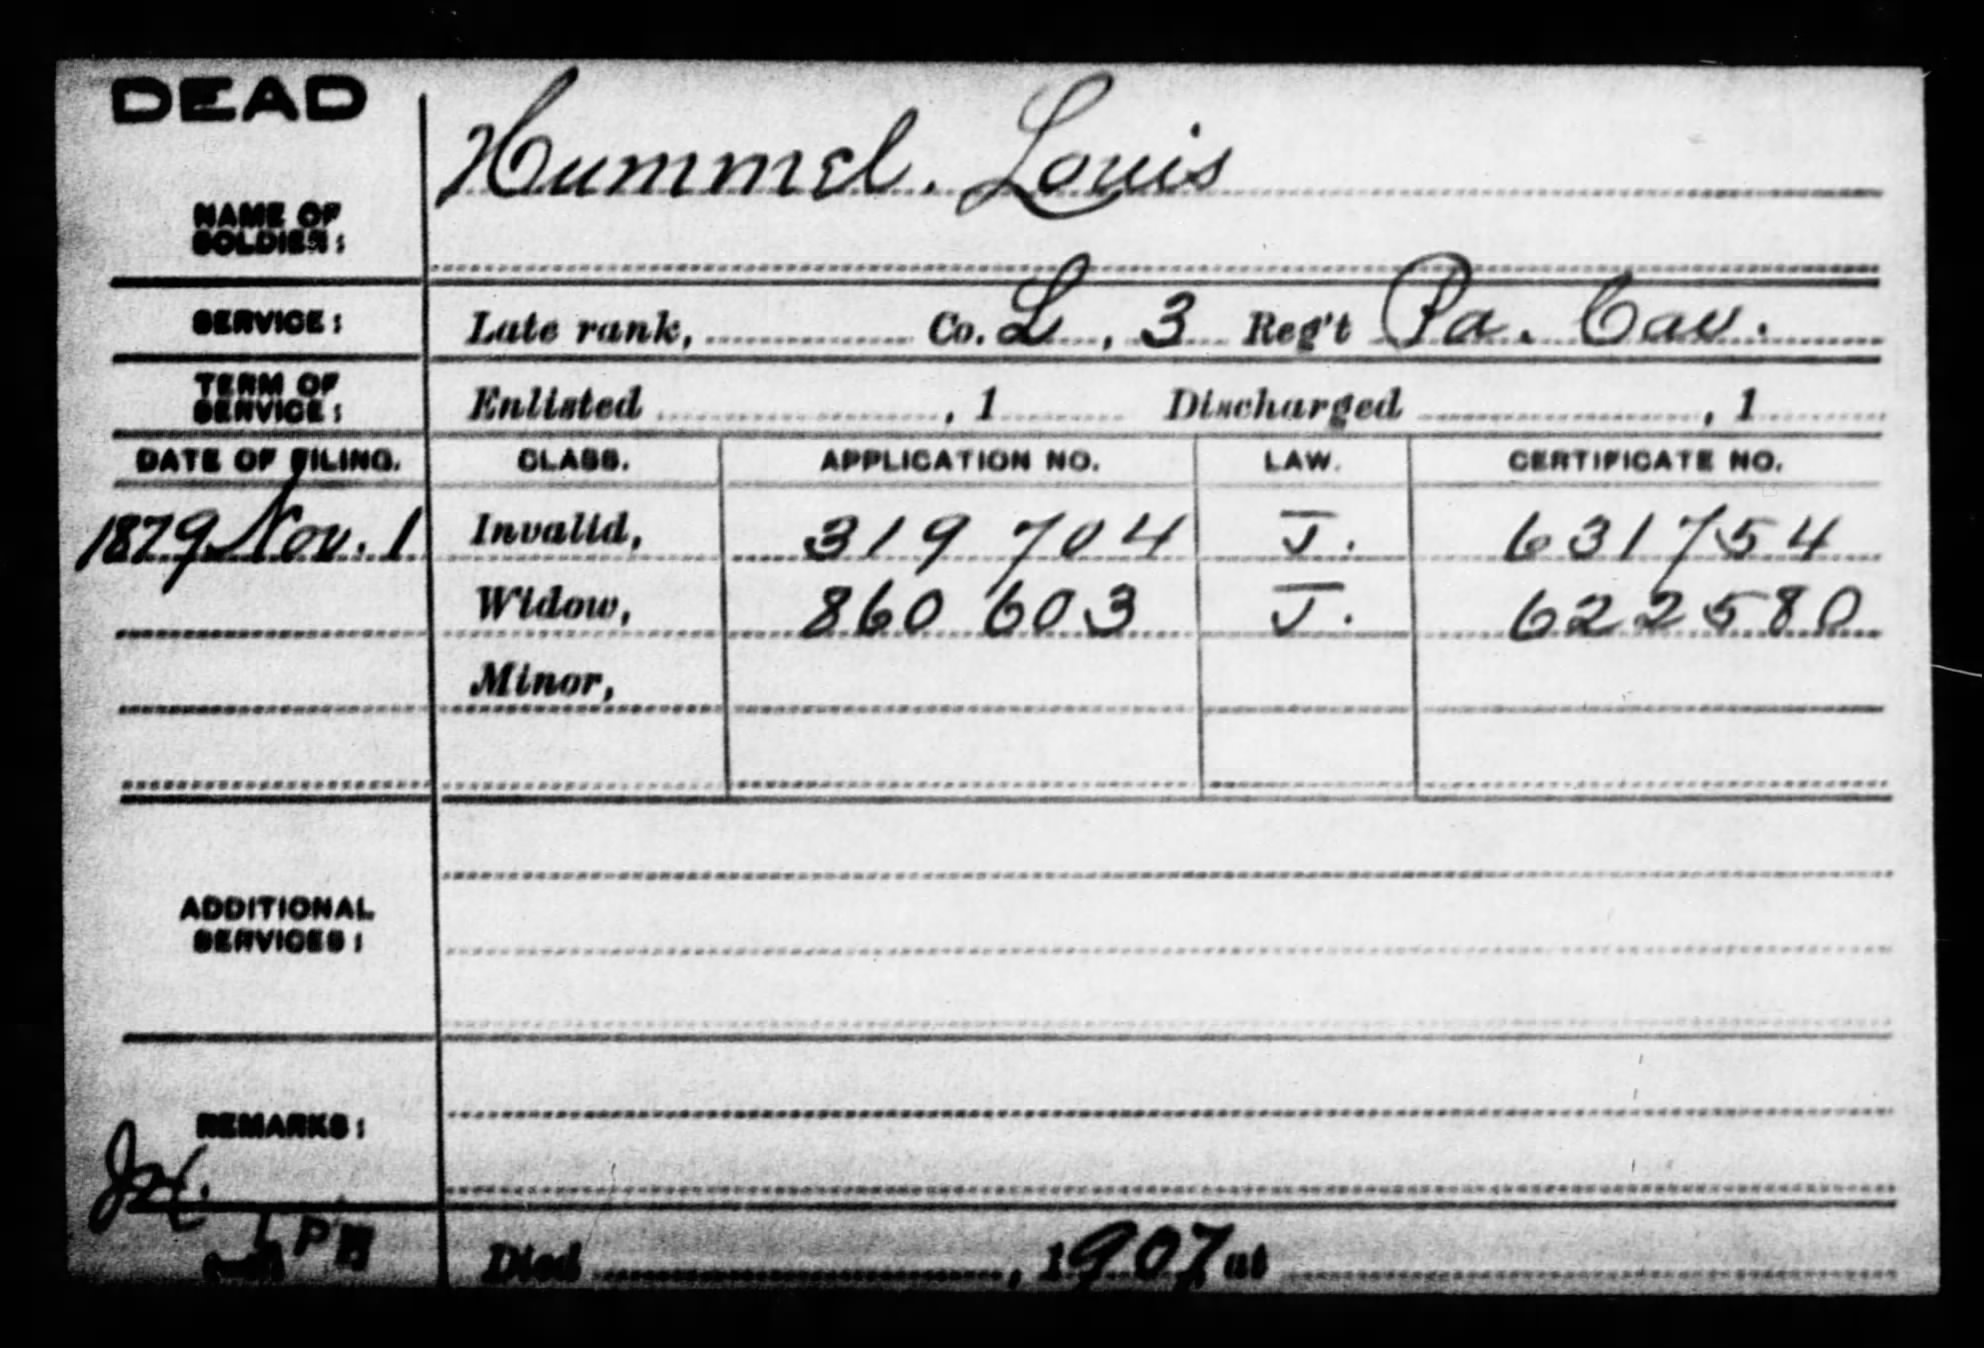 DEAD
Hummel. Louis
NAME OF
SOLDIER:
SERVICE: Late rank, Co. L, 3 Reg't Pa. Cav.
TERM OF
SERVICE: Enlisted , 1 Discharged , 1
DATE OF FILING. CLASS. APPLICATION NO. LAW. CERTIFICATE NO.
1879 Nov. 1 Invalid, 319 704 J. 631754
Widow, 860 603 J. 622580
Minor,
ADDITIONAL
SERVICES:
REMARKS:
Died , 1907 at